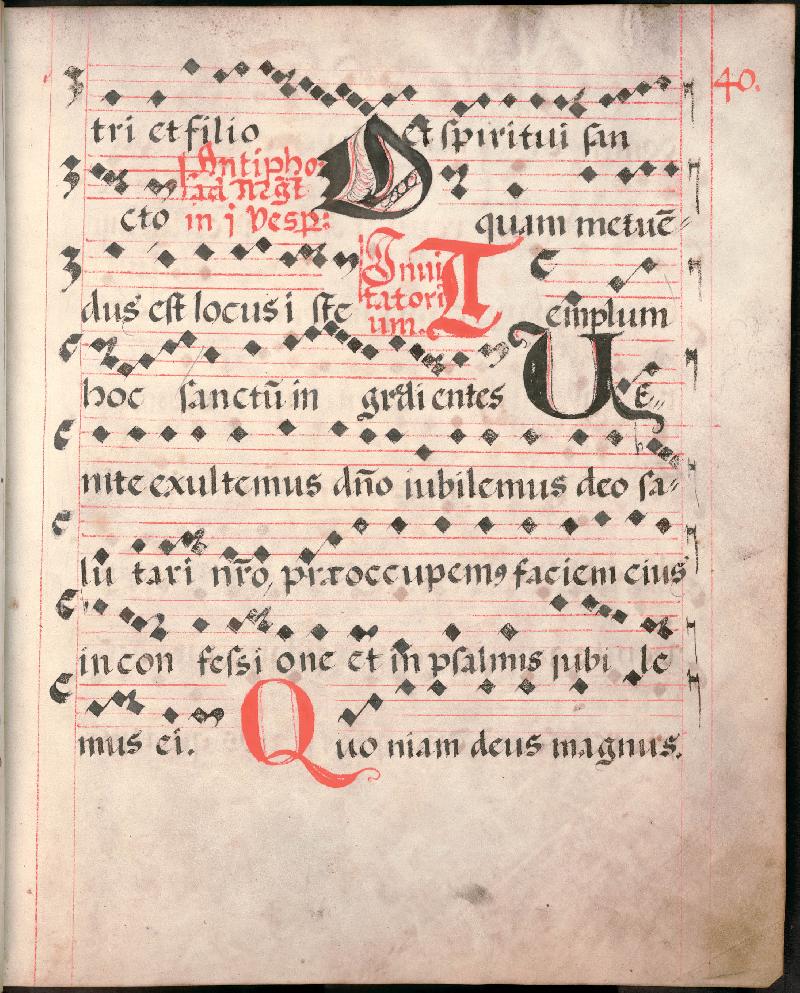 40.
tri et filio et spiritui san
Antipho
ad Mag̃t
cto in j Vesp: O quam metuē-
dus est locus i ste Inui
tatori
um. Templum
hoc sanctū in gredi entes Ue
nite exultemus dño iubilemus deo sa-
lu tari nr̃o, præoccupemꝯ faciem eius
in con fessi one et in psalmis jubi le
mus ei. Quo niam deus magnus.